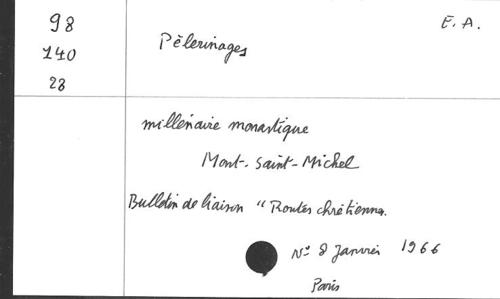 98
E. A.
140
Pèlerinages
28
millénaire monastique
Mont-Saint-Michel
Bulletin de liaison "Routes chrétiennes.
N° 8 Janvier 1966
Paris